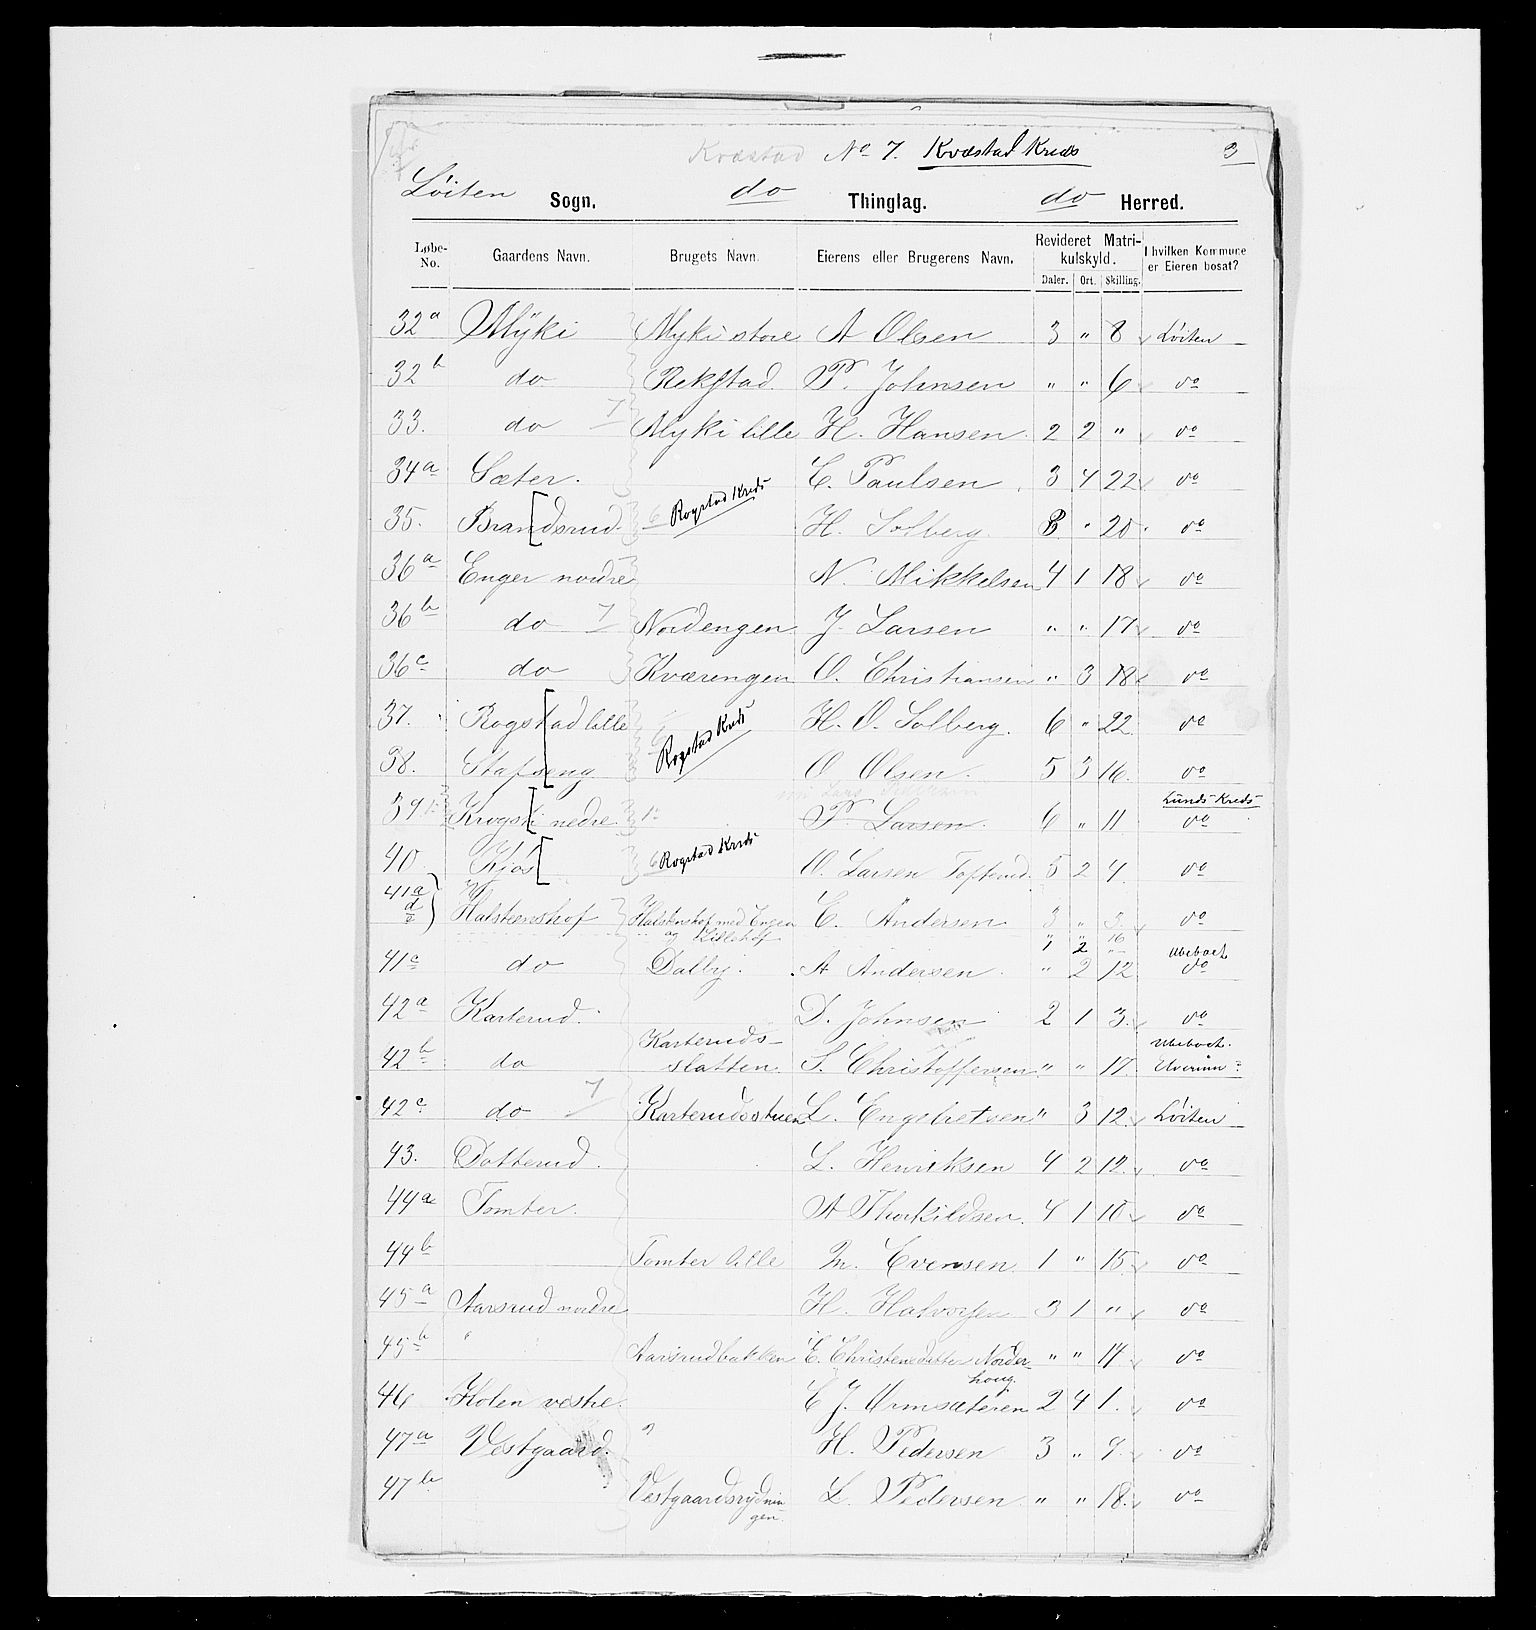 Kvæstad No 7. Kvæstad Kreds 3
Löiten Sogn. do Thinglag. do Herred.
Løbe-No. Gaardens Navn. Brugets Navn. Eierens eller Brugerens Navn. Revideret Matrikulskyld. Daler. Ort. Skilling. I hvilken Kommune er Eieren bosat?
32a Myki Myki store A Olsen 3 " 8 Löiten
32b do Rekstad P. Johnsen " " 6 do
33. do 7 Myki lille H. Hansen 2 2 " do
34a Sæter. C. Paulsen 3 4 22 do
35. Brandsrud 6 Rogstad Kreds H. Solberg 8 " 20 do
36a Enger nordre N. Mikkelsen 4 1 18 do
36b do 7 Nordengen J Larsen " " 17 do
36c do Kværengen O. Christiansen " 3 18 do
37. Rogstad lille 6 Rogstad Kreds H. O. Solberg. 6 " 22 do
38. Stafseng O Olsen. 5 3 16. do
Lunds Kreds
39 Krogsti nedre P. Larsen. 6 " 11 do
40 Kjös 6 Rogstad Kreds O. Larsen Tofterud. 5 2 4 do
41a d e Halsteenshof Halstenshof med Engen og Lillehof E. Andersen 3 " 5 do
" " 16
1 2 " Ubeboet
41c do Dalby. A Andersen " 2 12 do
42a Karterud. D. Johnsen 2 1 3. do
Ubeboet.
42b do Karterudsslatten. S. Christoffersen " " 17. Elverum
42c do 7 Karterudsstuen L. Engebretsen " 3 12 Löiten
43. Dotterud. L. Henriksen 4 2 12 do
44a Tomter. A Thorkildsen. 4 1 10 do
44b Tomter lille M. Evensen. 1 " 15 do
45a Aarsrud nordre H. Halvorsen 3 1 " do
45b " Aarsrudbakken E. Christensdatter Norderhoug. " " 14 do
46 Holen vestre. E J. Ormsæteren 2 4 1. do
47a Vestgaard. " H. Pedersen 3 " 9 do
47b Vestgaardsrydningen. L. Pedersen " " 18. do